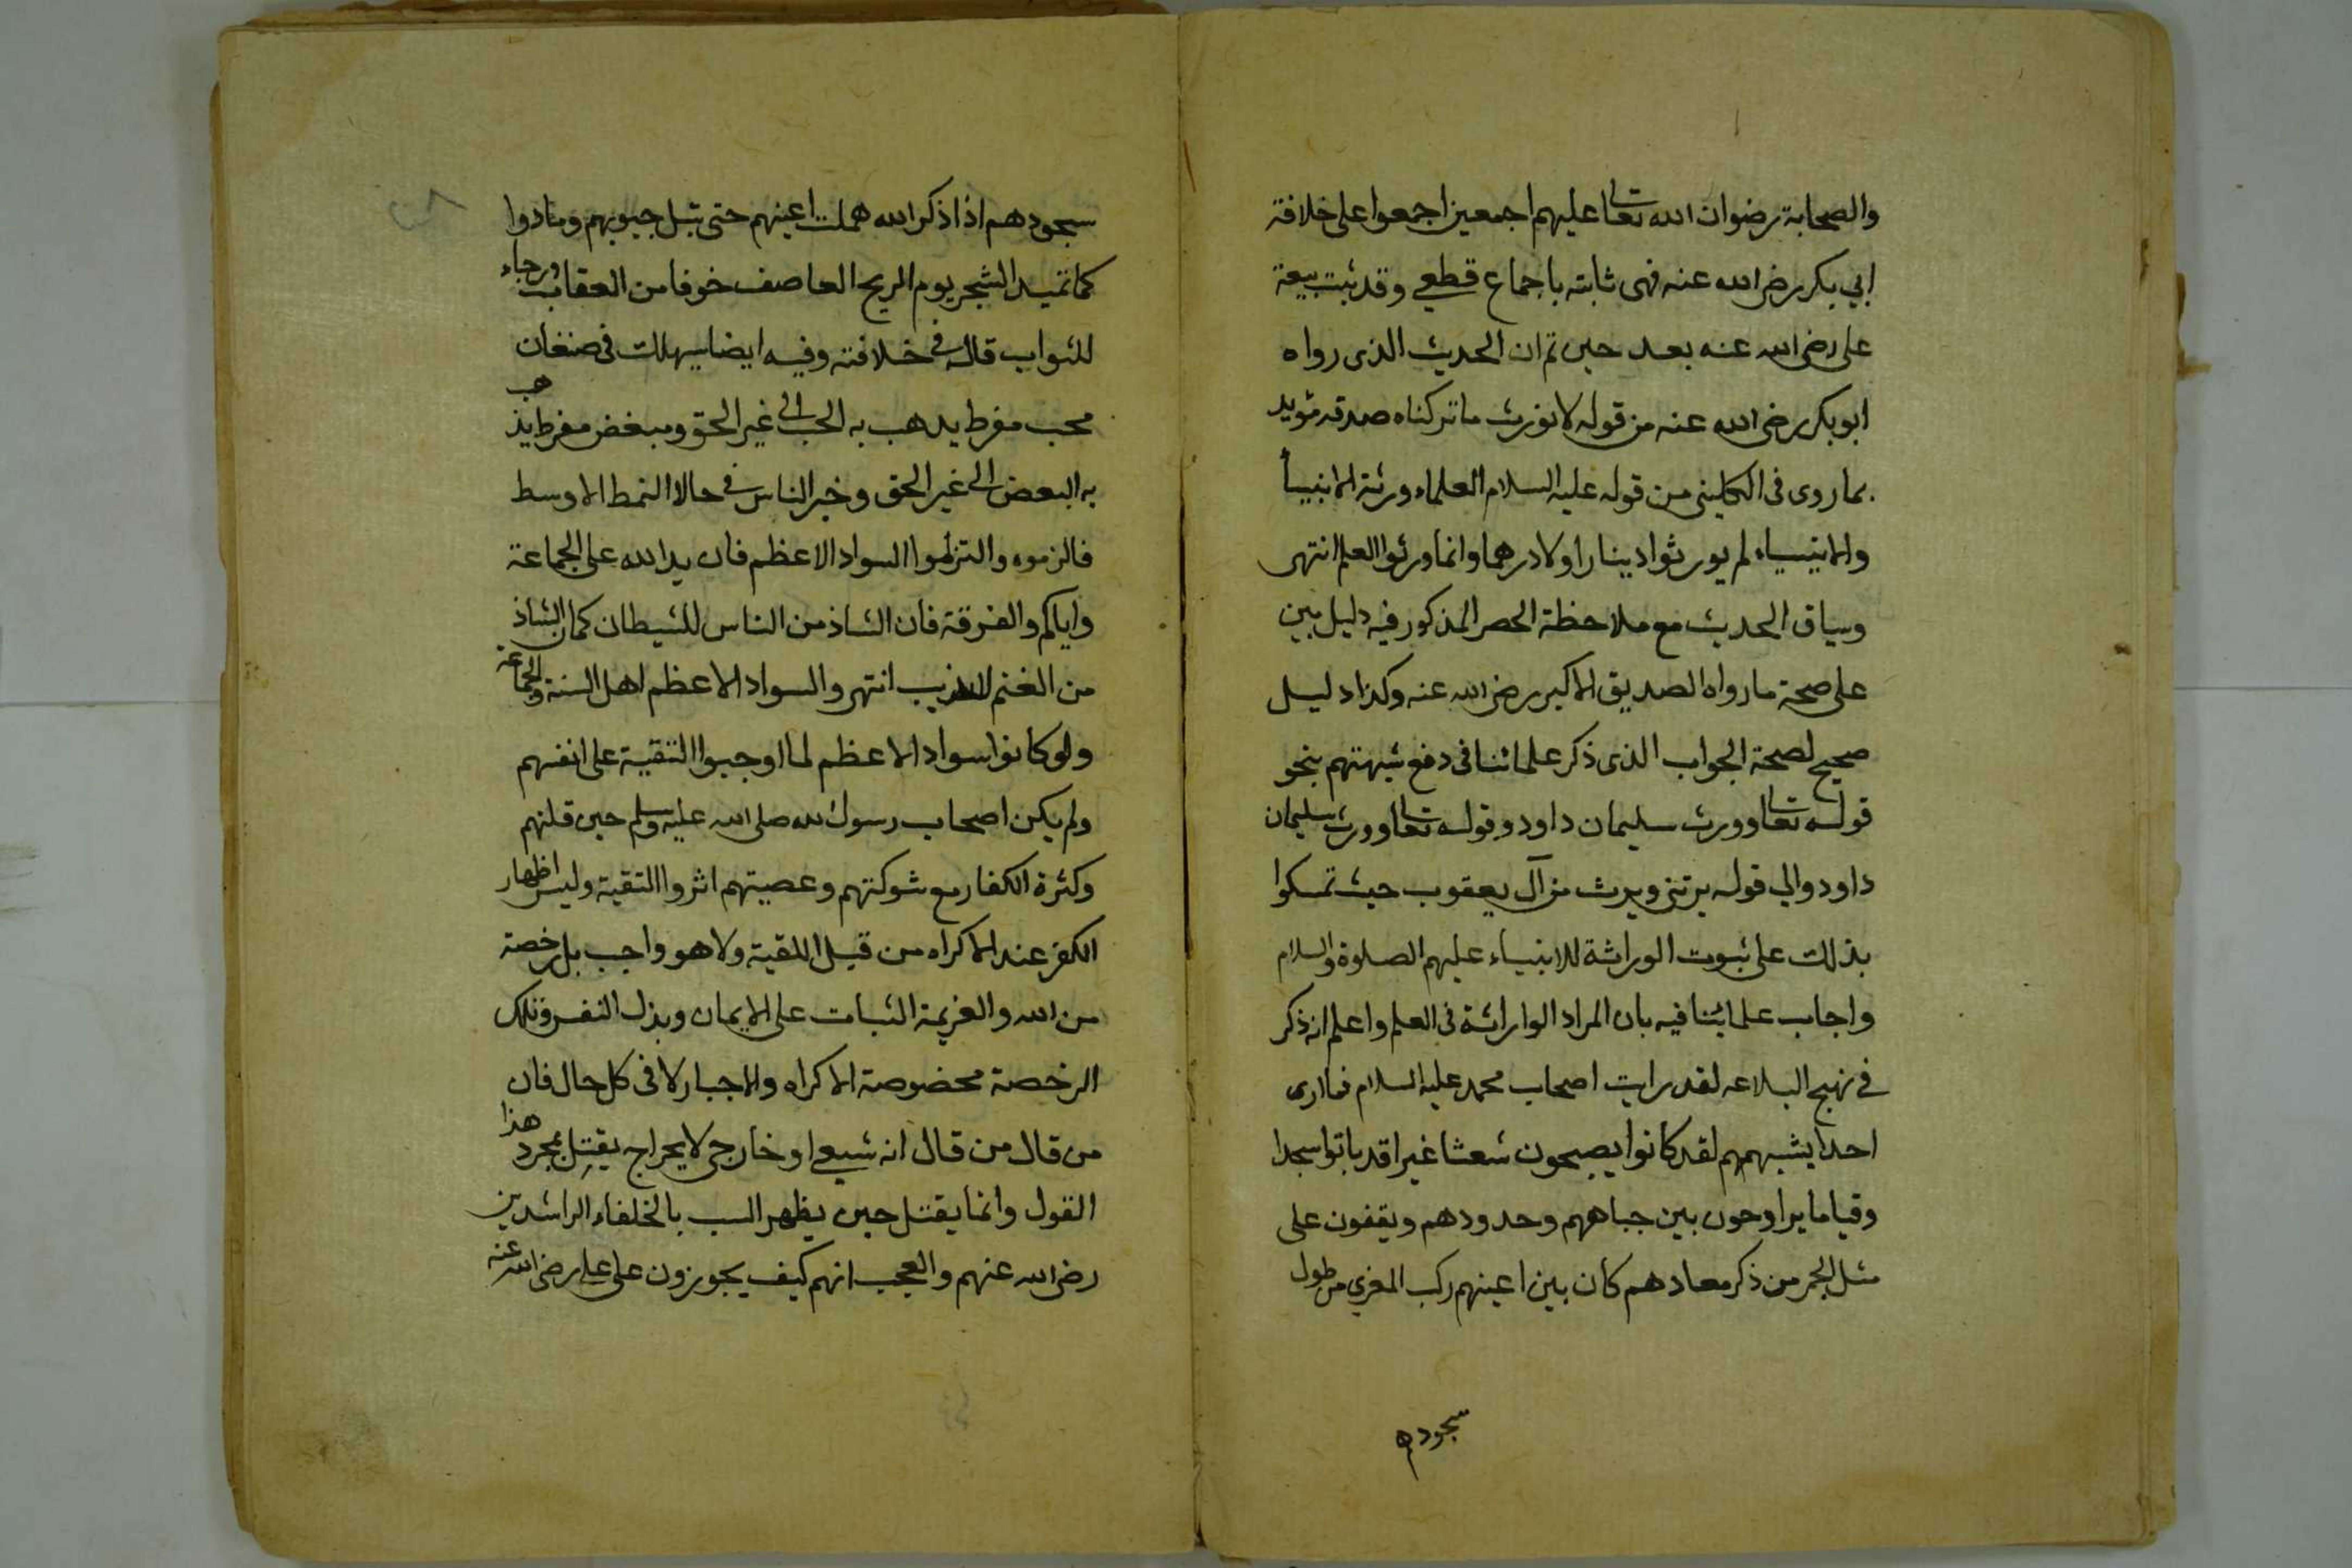 والصحابة رضوان الله تعالى عليهم اجمعين اجمعوا على خلافة
ابي بكر رضى الله عنه فهى ثابته باجماع قطعي وقد ثبت بيعة
على رضى الله عنه بعد حين ثم ان الحديث الذى رواه
ابوبكر رضى الله عنه من قوله لا نورث ما تركناه صدقه مؤيد
بما روى فى الكلينى من قوله عليه السلام العلماء ورثة الانبيأ
والانبياء لم يورثوا دينارا ولا درهما وانما ورثوا العلم انتهى
وسياق الحديث مع ملاحظة الحصر المذكور فيه دليل مبين
على صحة ما رواه الصديق الاكبر رضى الله عنه وكذا دليل
صحيح لصحة الجواب الذى ذكر علمائنا فى دفع شبهتهم بنحو
قوله تعالى وورث سليمان داود وقوله تعالى وورث سليمان
داود والي قوله يرثنى ويرث من آل يعقوب حيث تمسكوا
بذلك على ثبوت الوراثة للانبياء عليهم الصلوة والسلام
واجاب علمائنا فيه بان المراد الواراثة فى العلم واعلم انه ذكر
في نهج البلاعه لقد رايت اصحاب محمد عليه السلام فما ارى
احدا يشبههم لقد كانوا يصبحون شعثا غبرا قد باتوا سجدا
وقياما يراوحون بين جباههم وحدودهم ويقفون على
مثل الجمر من ذكر معادهم كان بين اعينهم ركب المعزي من طول
سجودهم
سجودهم اذا ذكر الله هملت اعينهم حتى تبل جيوبهم ومادوا
كما تميد الشجر يوم الريح العاصف خوفا من العقاب ورجاء
للثواب قاله في خلافته وفيه ايضا سيهلك فى صنفان
محب مفرط يدهب به الحب الى غير الحق ومبغض مفرط يذهب
به البعض الى غير الحق وخير الناس في حالا النمط الاوسط
فالزموه والتزموا السواد الاعظم فان يد الله على الجماعة
واياكم والفرقة فان الشاذ من الناس للشيطان كما ان الشاذ
من الغنم للذيب انتهى والسواد الاعظم اهل السنة والجماعة
ولو كانوا سواد الاعظم لما اوجبوا التقية على انفسهم
ولم يكن اصحاب رسول الله صلى الله عليه وسلم حين قلتهم
وكثرة الكفار مع شوكتهم وعصبيتهم اثروا التقية وليس اظهار
الكفر عند الاكراه من قبيل التقية ولا هو واجب بل رخصة
من الله والعزيمة الثبات على الايمان وبذل النفس وتلك
الرخصة مخصوصة الاكراه والاجبار لا فى كل حال فان
من قال من قال انه شيعي او خارجى لا يحراج يقتل بمجرد هذا
القول وانما يقتل حين يظهر السب بالخلفاء الراشدين
رضى الله عنهم والعجب انهم كيف يجوزون على على رضى الله عنه